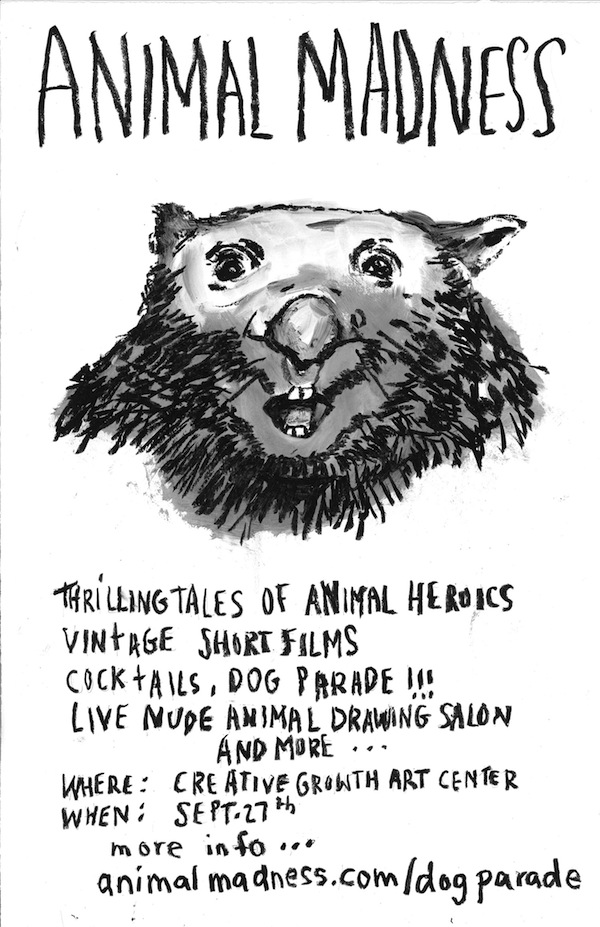 ANIMAL MADNESS
THRILLING TALES OF ANIMAL HEROICS
VINTAGE SHORT FILMS
COCKTAILS, DOG PARADE !!!
LIVE NUDE ANIMAL DRAWING SALON
AND MORE ...
WHERE: CREATIVE GROWTH ART CENTER
WHEN: SEPT.27th
more info ...
animalmadness.com/dogparade